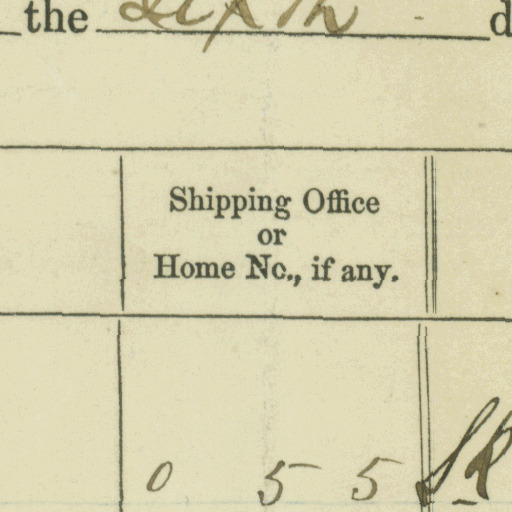 the Sixth d
Shipping Office
or
Home No., if any.
0 5 5